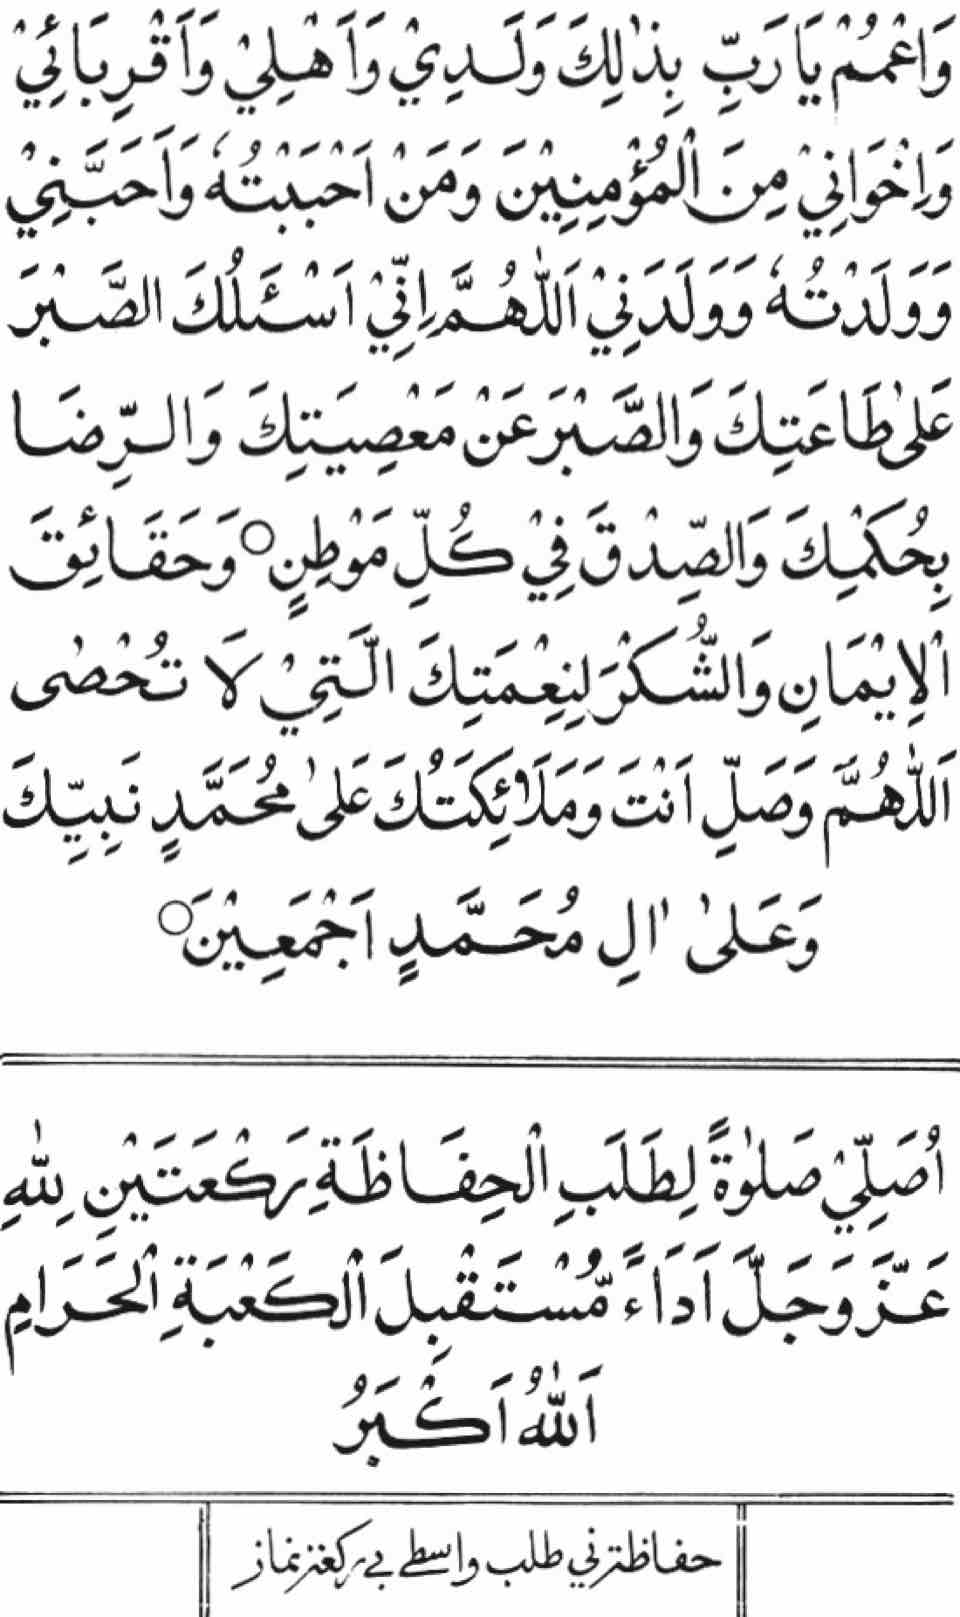 وَاعْمُمْ يَا رَبِّ بِذٰلِكَ وَلَدِيْ وَاَهْلِيْ وَاَقْرِبَائِيْ
وَاِخْوَانِيْ مِنَ الْمُؤْمِنِيْنَ وَمَنْ اَحْبَبْتُهٗ وَاَحَبَّنِيْ
وَوَلَدْتُهٗ وَوَلَدَنِيْ اَللّٰهُمَّ اِنِّيْ اَسْئَلُكَ الصَّبْرَ
عَلٰى طَاعَتِكَ وَالصَّبْرَ عَنْ مَعْصِيَتِكَ وَالرِّضَا
بِحُكْمِكَ وَالصِّدْقَ فِيْ كُلِّ مَوْطِنٍ ○ وَحَقَائِقَ
الْاِيْمَانِ وَالشُّكْرَ لِنِعْمَتِكَ الَّتِيْ لَا تُحْصٰى
اَللّٰهُمَّ وَصَلِّ اَنْتَ وَمَلَائِكَتُكَ عَلٰى مُحَمَّدٍ نَبِيِّكَ
وَعَلٰى اٰلِ مُحَمَّدٍ اَجْمَعِيْنَ ○
اُصَلِّيْ صَلٰوةً لِطَلَبِ الْحِفَاظَةِ رَكْعَتَيْنِ لِلّٰهِ
عَزَّ وَجَلَّ اَدَاءً مُّسْتَقْبِلَ الْكَعْبَةِ الْحَرَامِ
اَللّٰهُ اَكْبَرُ
حفاظتني طلب واسطے بے ركعة نماز